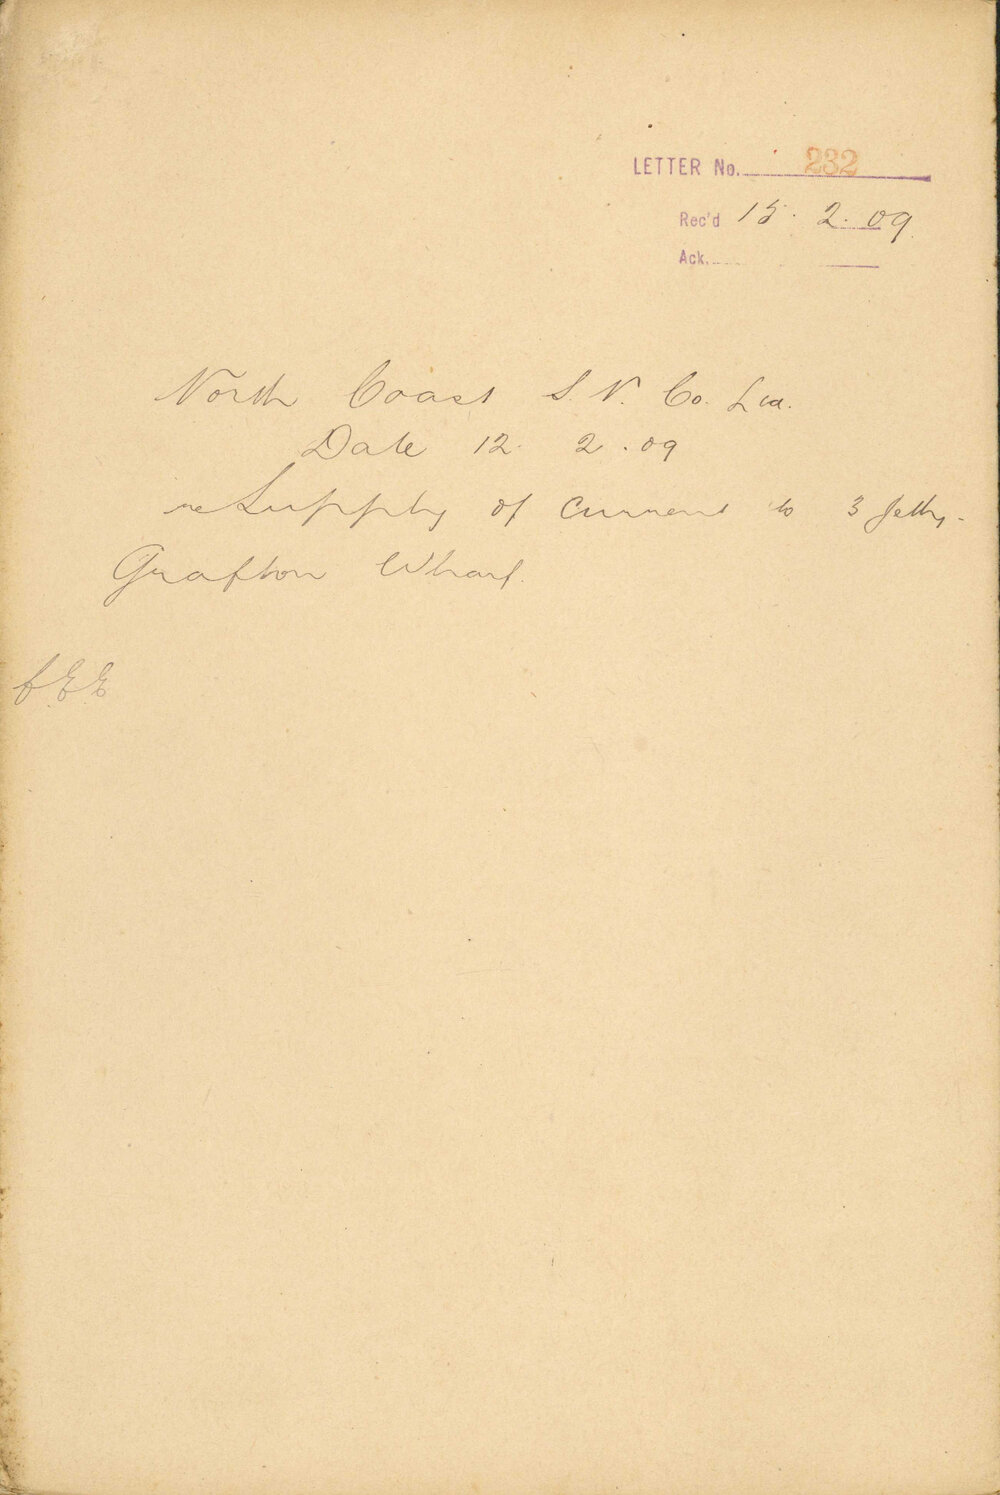 LETTER No. 232
Rec'd 15. 2. 09.
Ack.
North Coast S. N. Co. Ltd.
Date 12. 2. 09
re Supply of current to 3 Jetty.
Grafton Wharf.
C.E.E